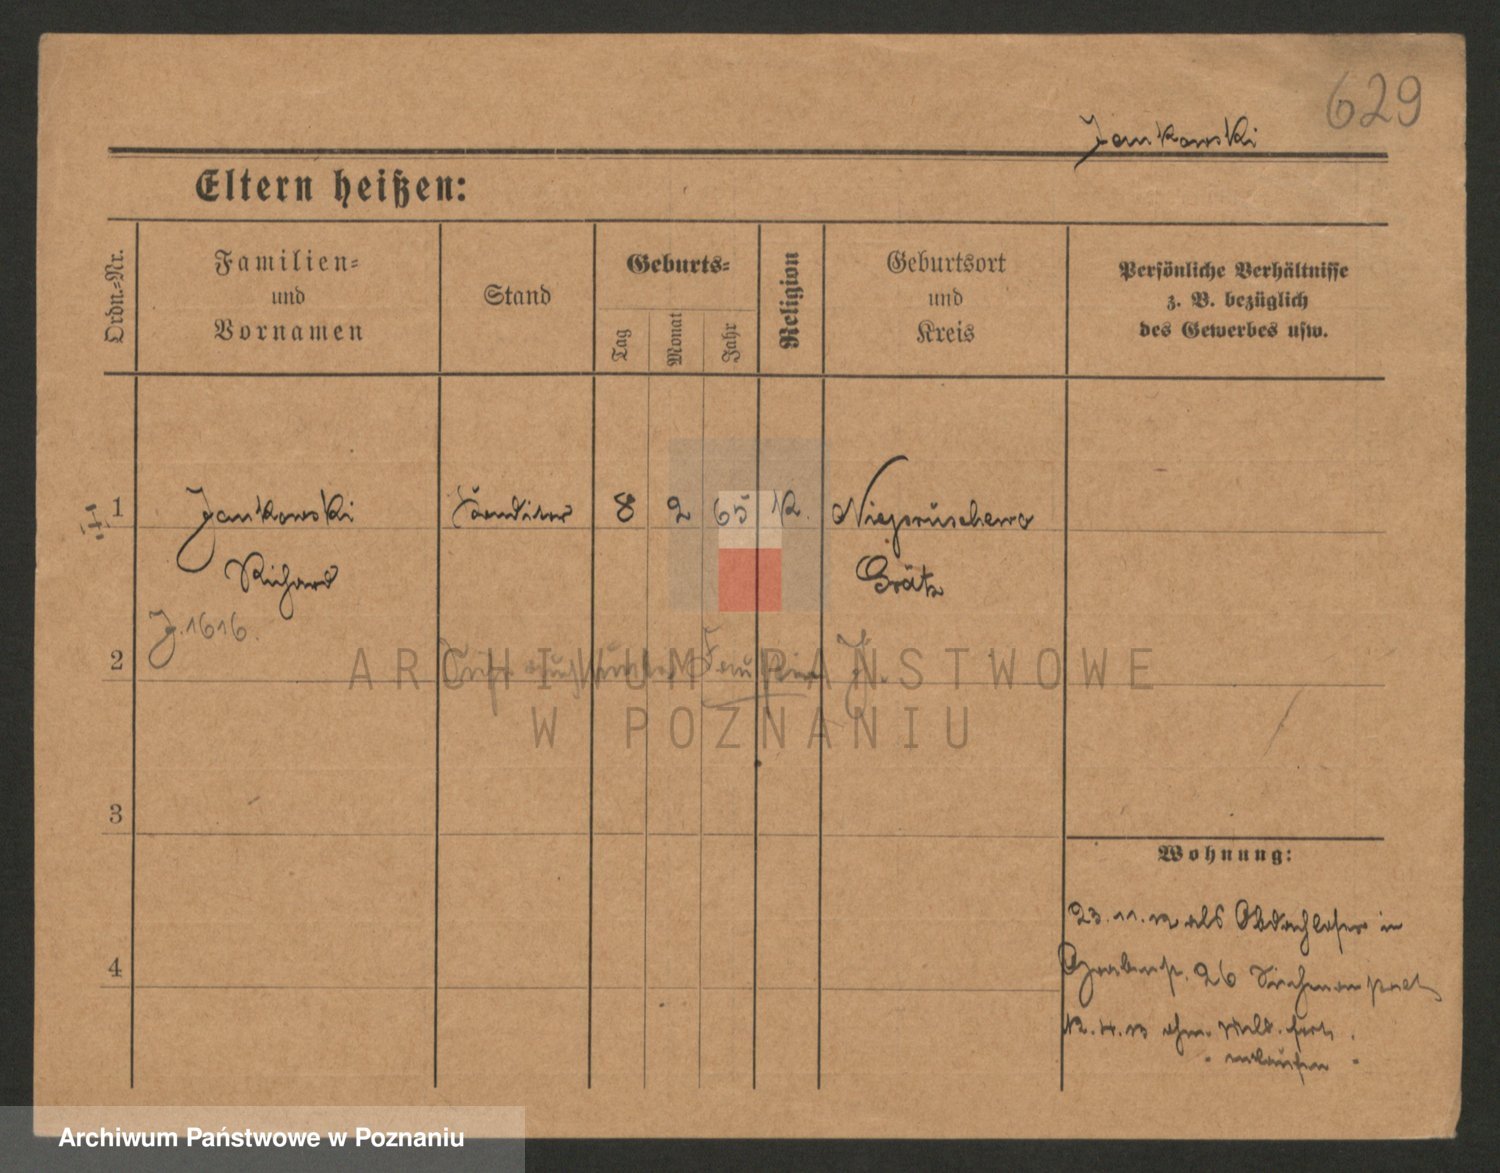 629
Jankowski
Eltern heißen:
Ordn.-Nr.
Familien-
und
Vornamen
Stand
Geburts-
Tag
Monat
Jahr
Religion
Geburtsort
und
Kreis
Persönliche Verhältnisse
z. B. bezüglich
des Gewerbes usw.
1 Jankowski Konditor 8 2 65 K. Niegoruschewo
Richard Grätz
J. 1616.
2
ARCHIWUM PAŃSTWOWE
W POZNANIU
3
Wohnung:
23.11.12 als Obdachloser in
4
Grabenstr. 26
12.4.13 ohne Meld. fort.
Archiwum Państwowe w Poznaniu